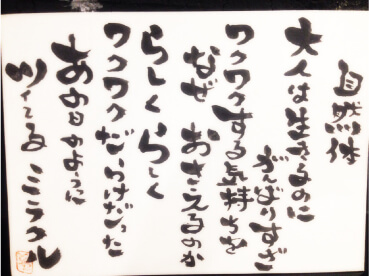 自然体
大人は生きるのに
がんばりすぎ
ワクワクする気持ちを
なぜ おさえるのか
らしく らしく
ワクワクだらけだった
あの日のように
ツイてる ミラクル